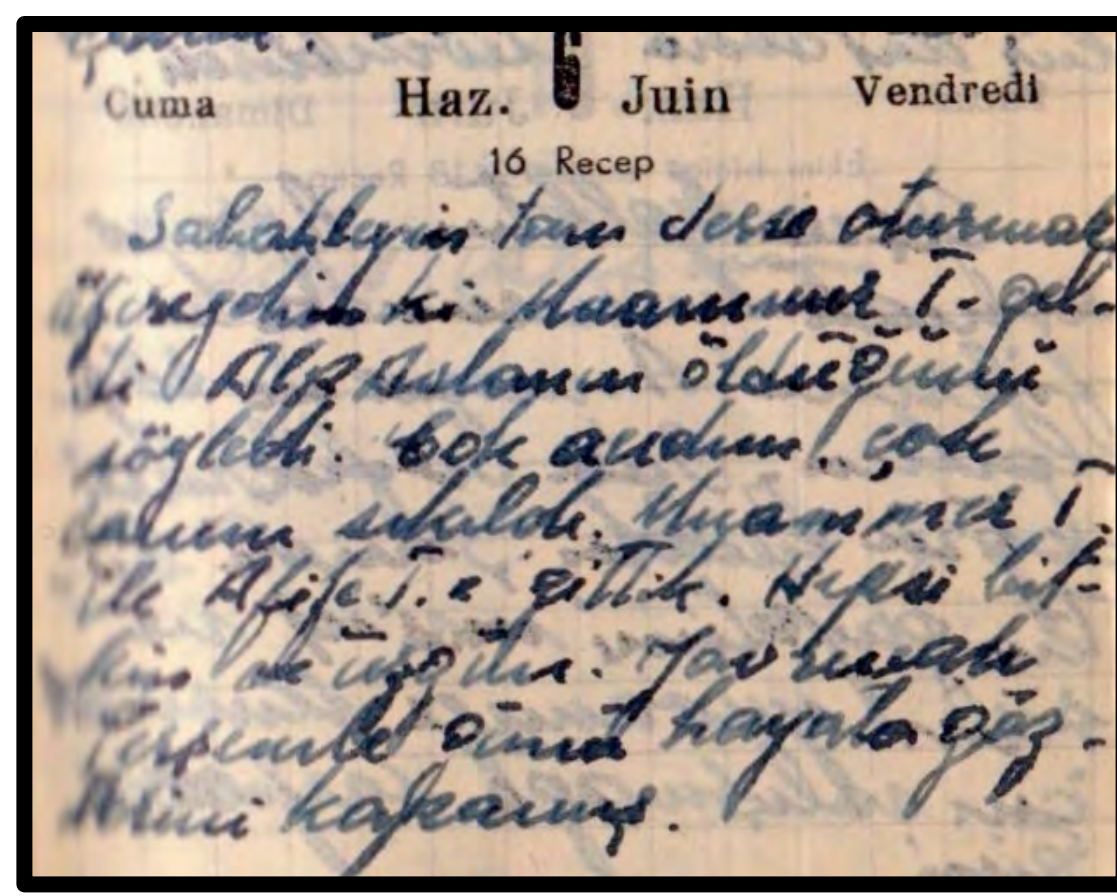 Cuma Haz. 6 Juin Vendredi
16 Recep
Sabahleyin tam derse oturmak
üzereydim ki Muammer T. gel-
di Alp Aslanın öldüğünü
söyledi. Çok acıdım, çok
canım sıkıldı. Muammer T.
ile Afife T. e gittik. Hepsi bit-
kin ve üzgün. Yavrucak
Perşembe günü hayata göz-
lerini kapamış.